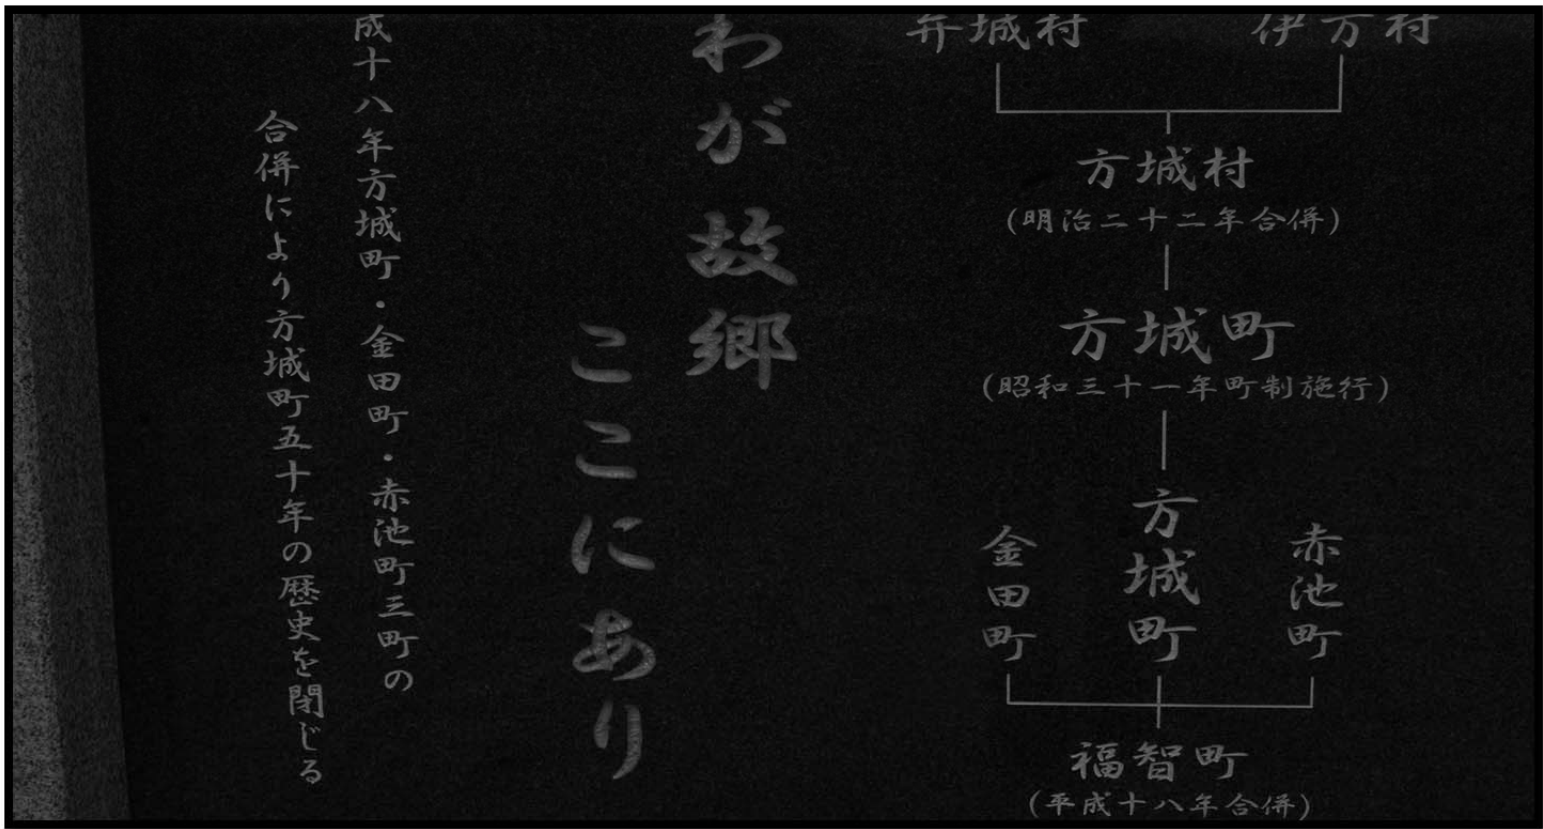 弁城村
伊方村
方城村
(明治二十二年合併)
方城町
(昭和三十一年町制施行)
赤池町
方城町
金田町
福智町
(平成十八年合併)
わが故郷
ここにあり
成十八年方城町・金田町・赤池町三町の
合併により方城町五十年の歴史を閉じる